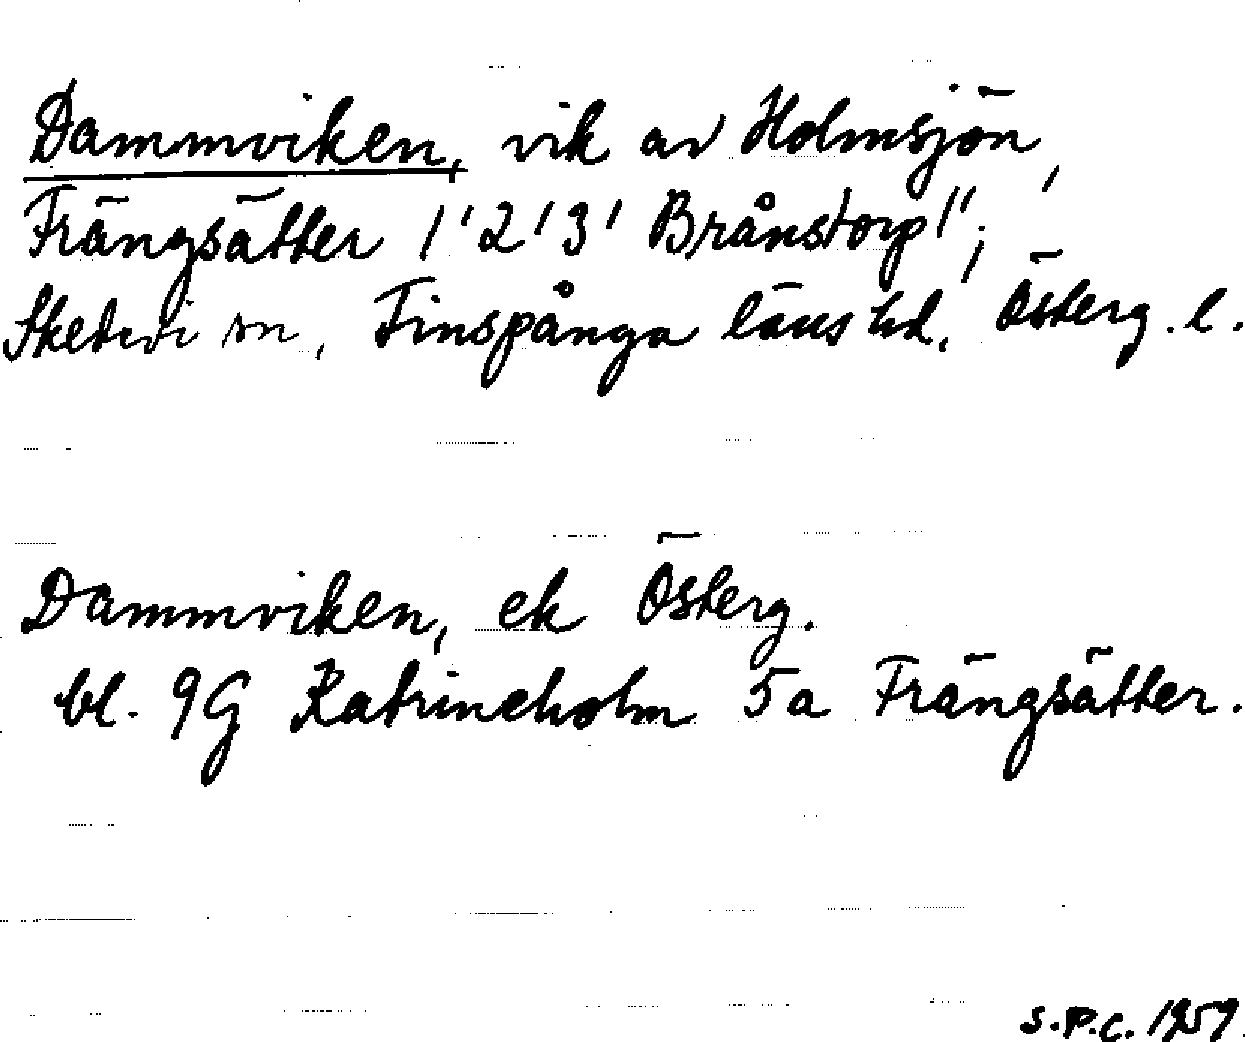 Dammviken, vik av Holmsjön,
Frängsätter 1'2'3' Brånstorp 1";
Skedevi sn, Finspånga läns hd, Österg. l.
Dammviken, ek Österg.
bl. 9G Katrineholm 5a Frängsätter.
S.P.C. 1959